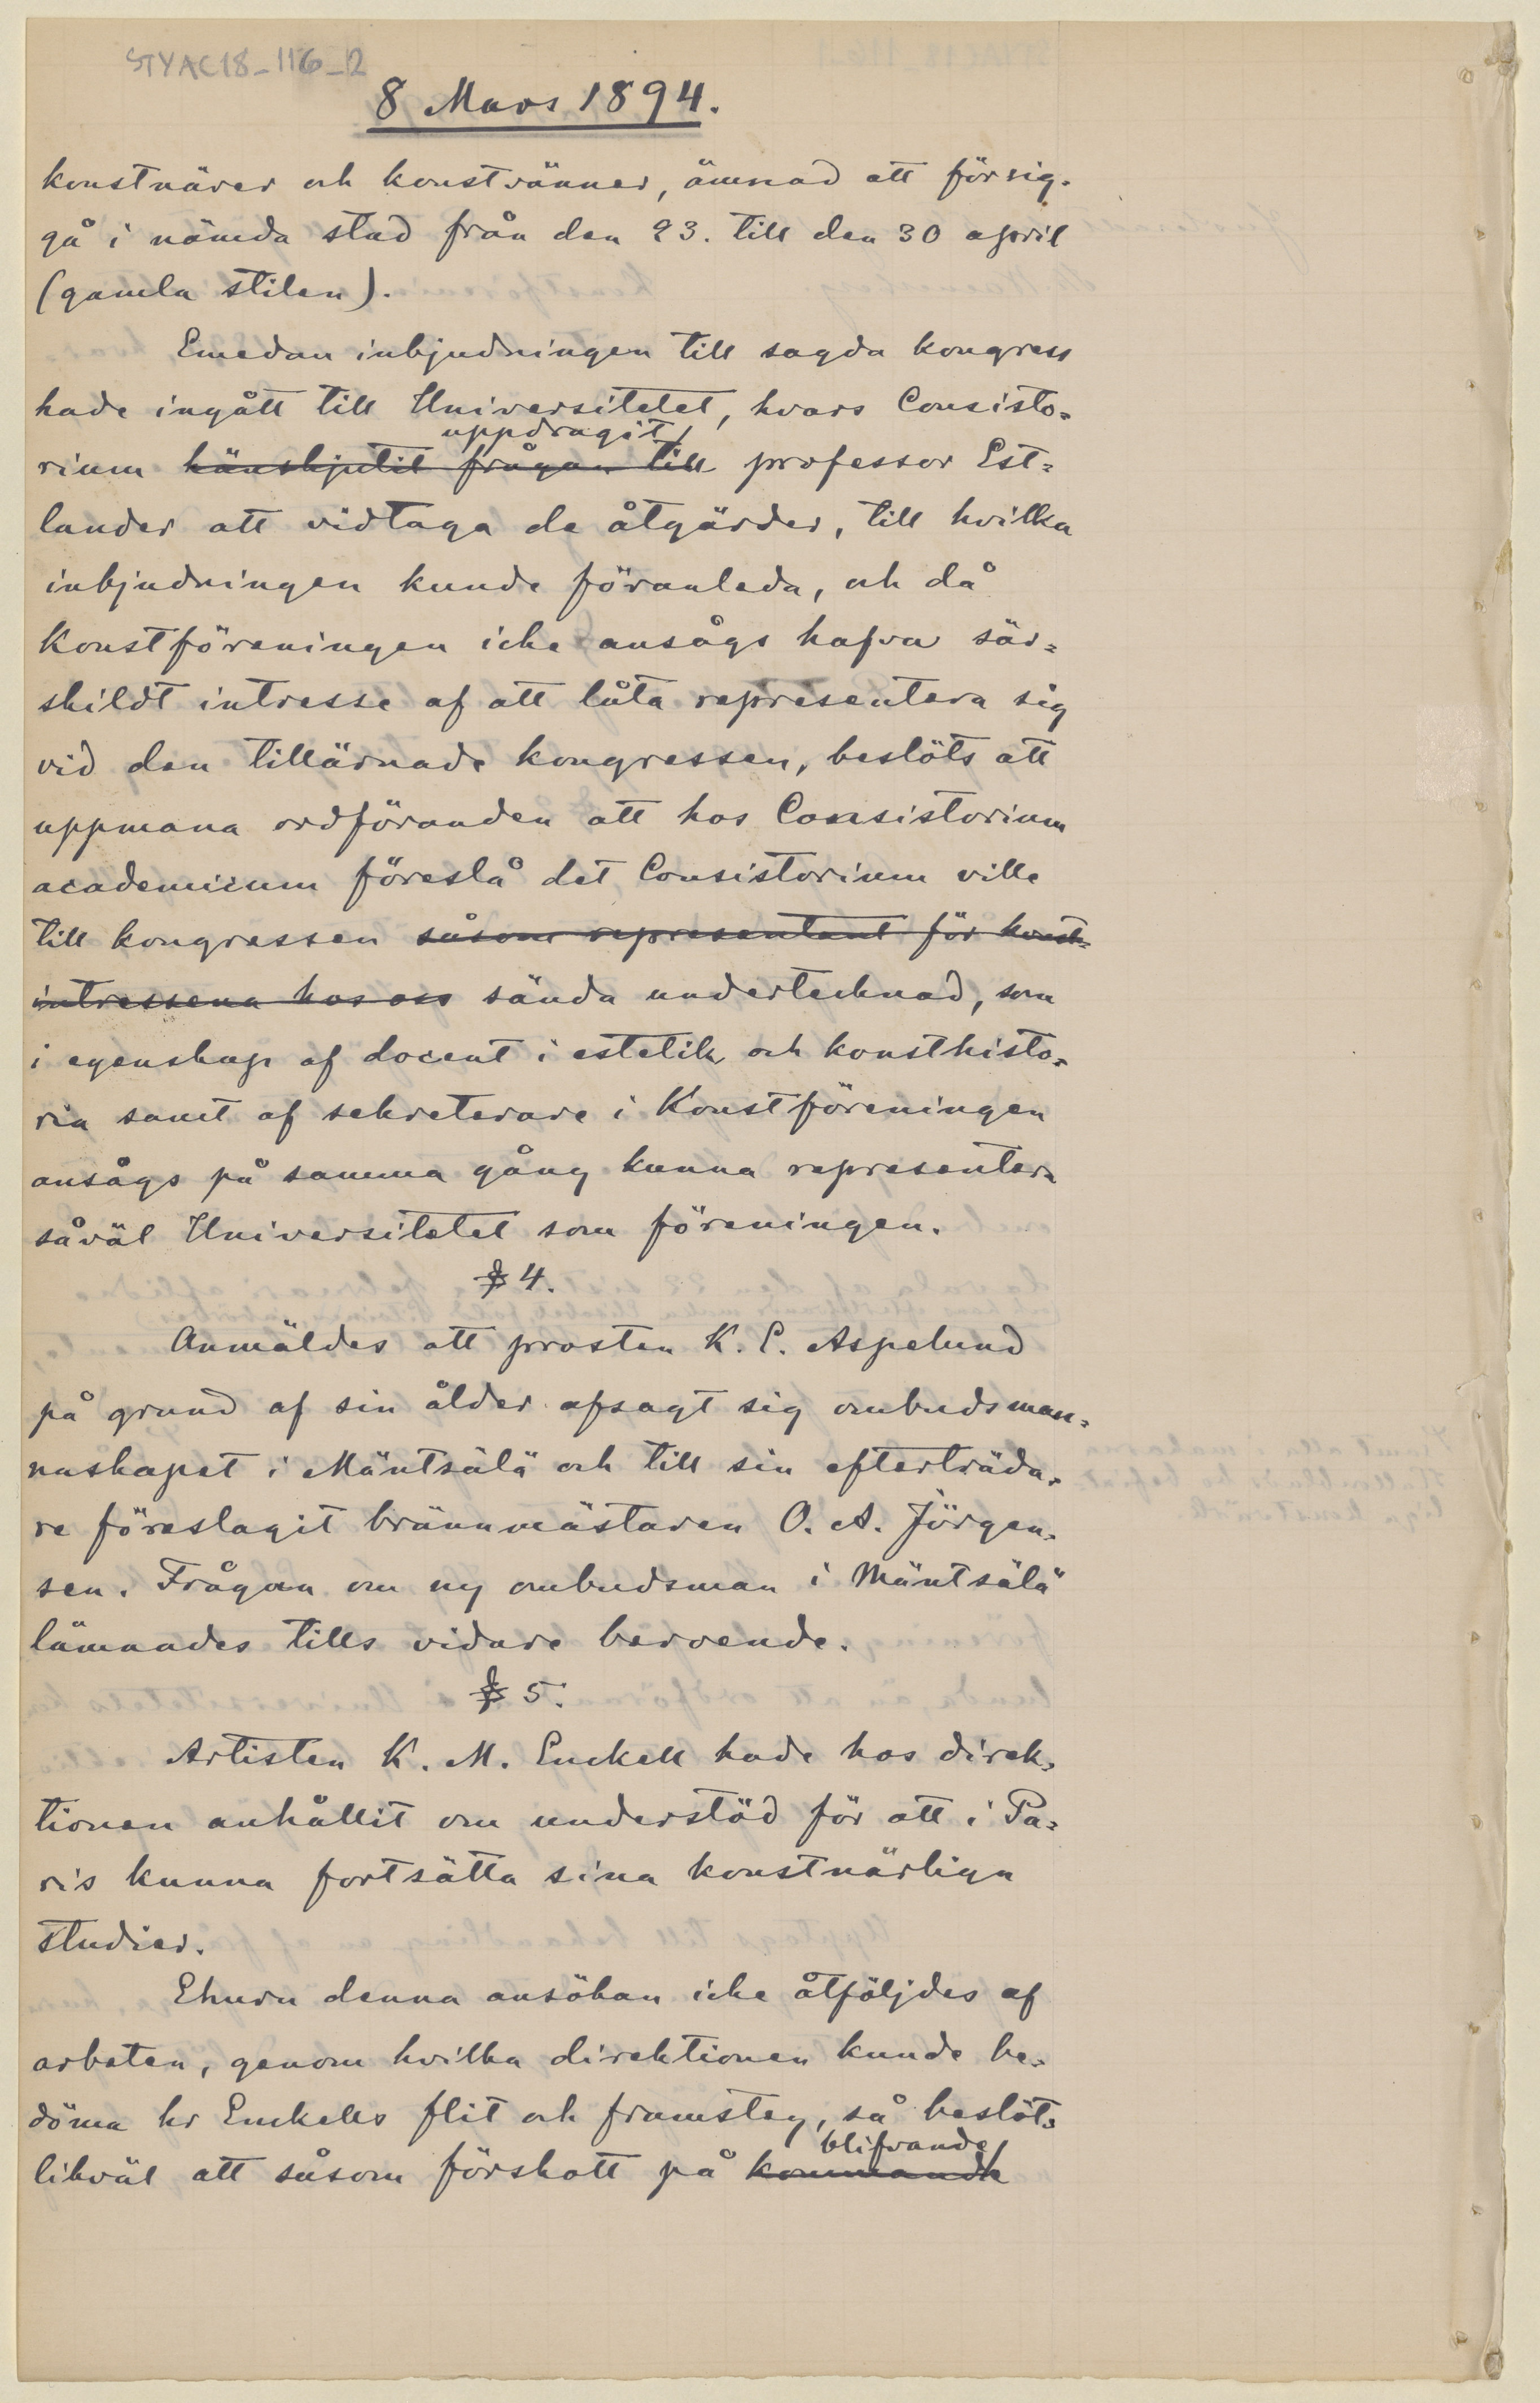 STYAC18_116_12
8 Mars 1894.
konstnärer och konstvänner, ämnad att försig-
gå i nämda stad från den 23. till den 30 april
(gamla stilen).
Emedan inbjudningen till sagda kongress
hade ingått till Universitetet, hvars Consisto-
uppdragit
rium hänskjutit frågan till professor Est-
lander att vidtaga de åtgärder, till hvilka
inbjudningen kunde föranleda, och då
Konstföreningen icke ansågs hafva sär-
skildt intresse af att låta representera sig
vid den tillärnade kongressen, beslöts att
uppmana ordföranden att hos Consistorium
academicum föreslå det Consistorium ville
till kongressen såsom representant för konst-
intressena hos oss sända undertecknad, som
i egenskap af docent i estetik och konsthisto-
ria samt af sekreterare i Konstföreningen
ansågs på samma gång kunna representera
såväl Universitetet som föreningen.
§ 4.
Anmäldes att prosten K. E. Aspelund
på grund af sin ålder afsagt sig ombudsman-
naskapet i Mäntsälä och till sin efterträda-
re föreslagit brännmästaren O. A. Jörgen-
sen. Frågan om ny ombudsman i Mäntsälä
lämnades tills vidare beroende.
§ 5.
Artisten K. M. Enckell hade hos direk-
tionen anhållit om understöd för att i Pa-
ris kunna fortsätta sina konstnärliga
studier.
Ehuru denna ansökan icke åtföljdes af
arbeten, genom hvilka direktionen kunde be-
döma hr Enckells flit och framsteg, så beslöts
blifvande
likväl att såsom förskott på kommande